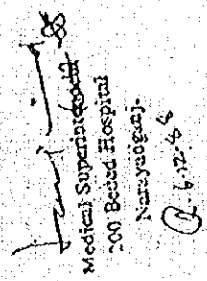 Medical Superintendent
200 Beded Hospital
Narayaoganj.
6.12.88